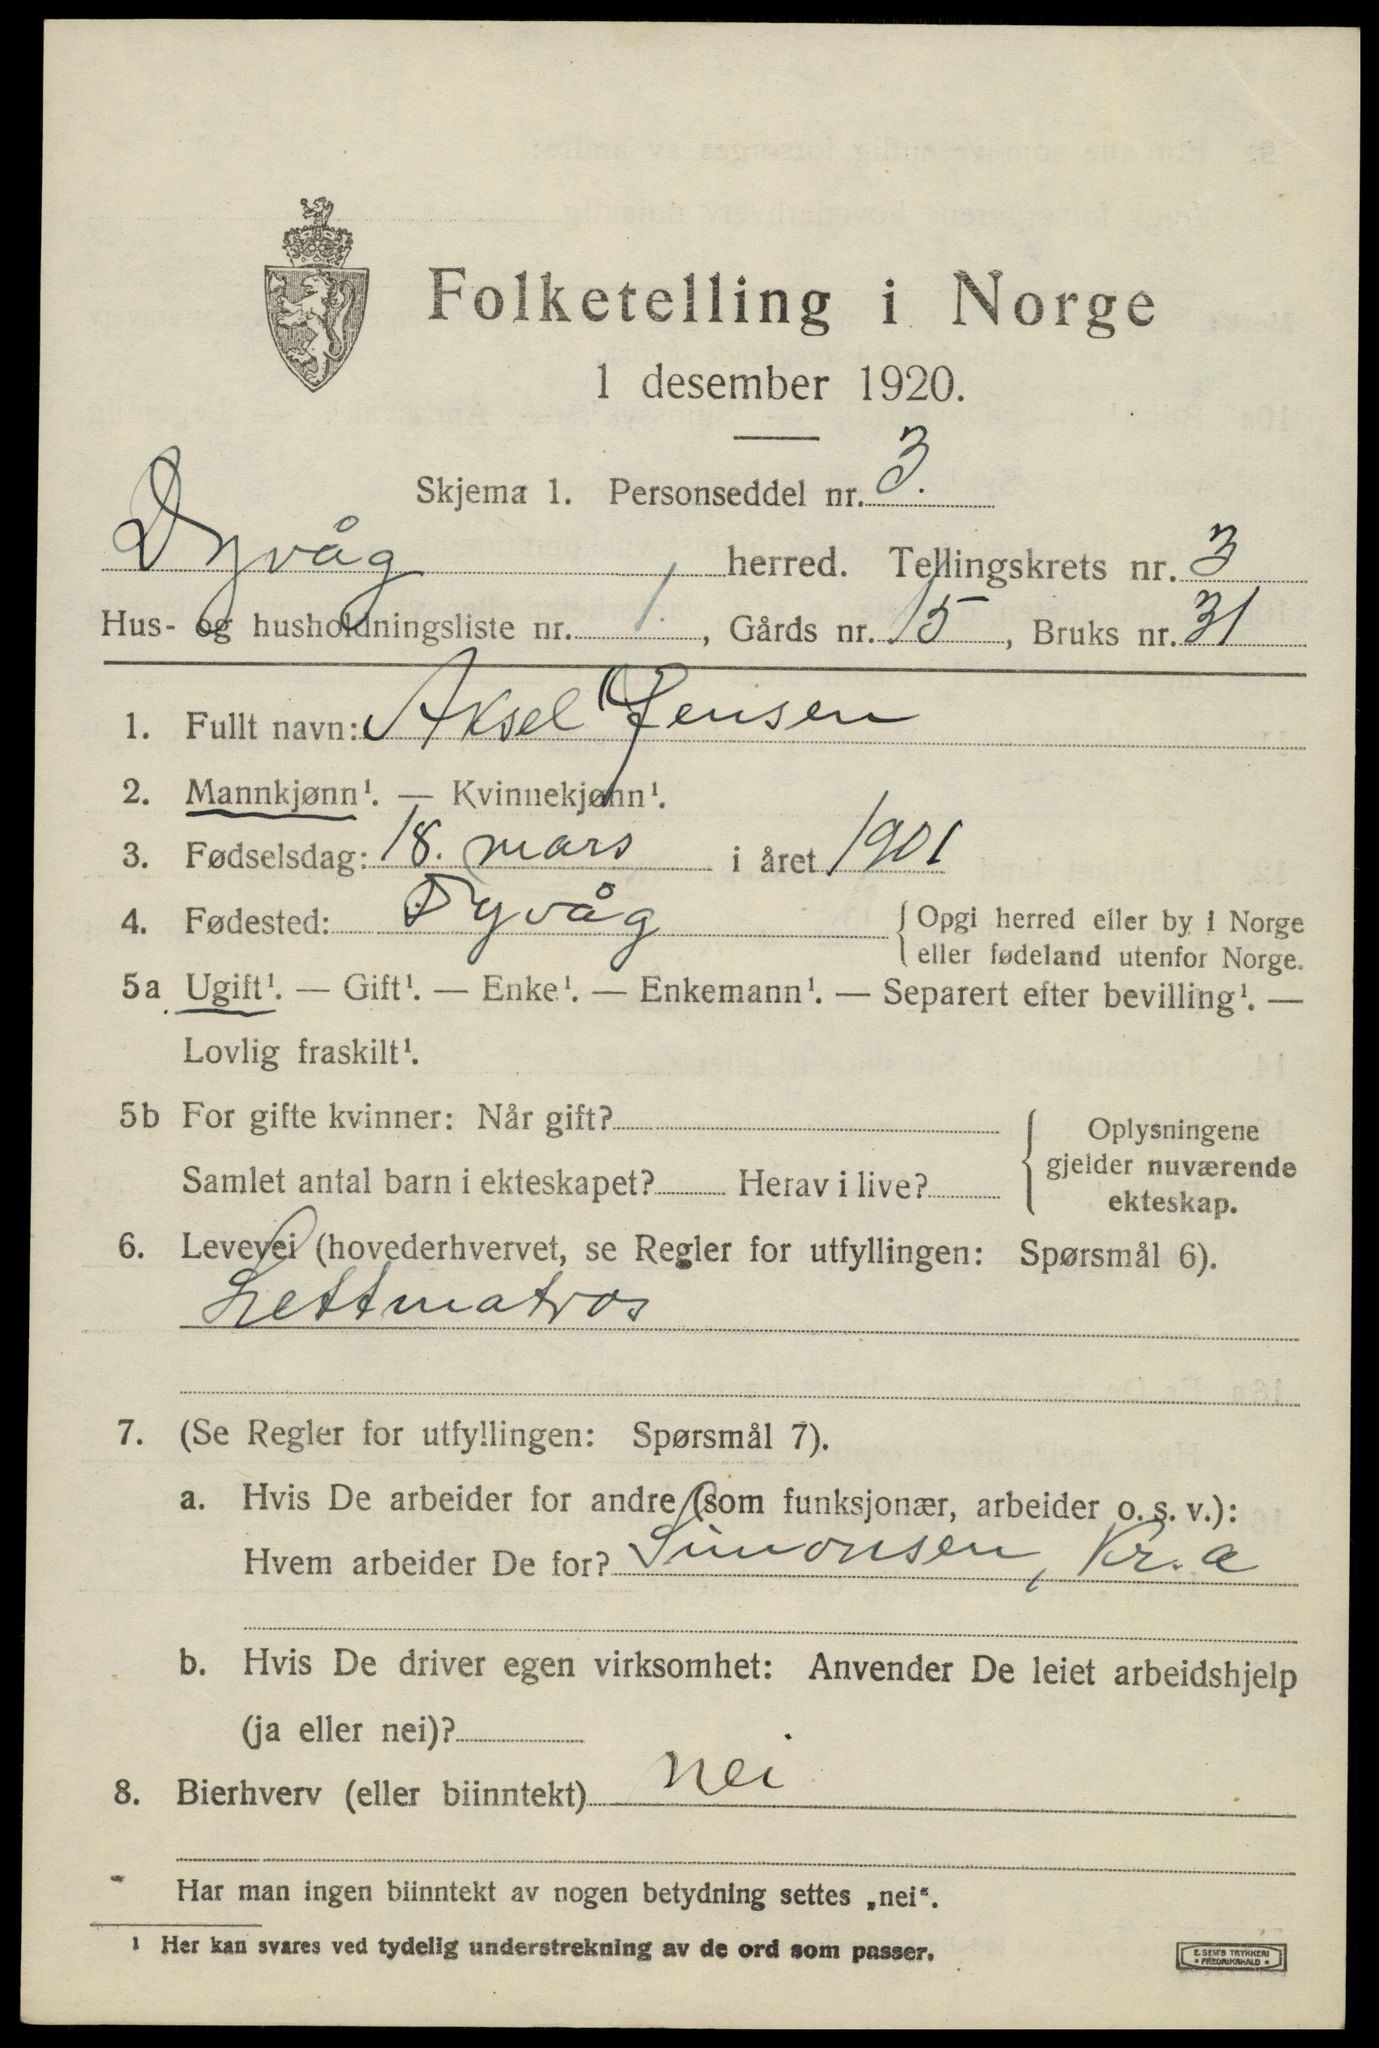 Folketelling i Norge
1 desember 1920.
Skjema 1. Personseddel nr. 3.
Dyvåg herred. Tellingskrets nr. 3
Hus- og husholdningsliste nr. 1. , Gårds nr. 15 , Bruks nr. 31
1. Fullt navn: Aksel Jensen
2. Mannkjønn¹. — Kvinnekjønn¹.
3. Fødselsdag: 18. mars i året 1901
4. Fødested: Dyvåg { Opgi herred eller by i Norge
eller fødeland utenfor Norge.
5a Ugift¹. — Gift¹. — Enke¹. — Enkemann¹. — Separert efter bevilling¹. —
Lovlig fraskilt¹.
5b For gifte kvinner: Når gift?
Samlet antal barn i ekteskapet? Herav i live?
{ Oplysningene
gjelder nuværende
ekteskap.
6. Levevei (hovederhvervet, se Regler for utfyllingen: Spørsmål 6).
Lettmatros
7. (Se Regler for utfyllingen: Spørsmål 7).
a. Hvis De arbeider for andre (som funksjonær, arbeider o. s. v.):
Hvem arbeider De for? Simonsen, Kr.a
b. Hvis De driver egen virksomhet: Anvender De leiet arbeidshjelp
(ja eller nei)?
8. Bierhverv (eller biinntekt) nei
Har man ingen biinntekt av nogen betydning settes „nei“.
¹ Her kan svares ved tydelig understrekning av de ord som passer.
E. SEM'S TRYKKERI
• FREDRIKSHALD •